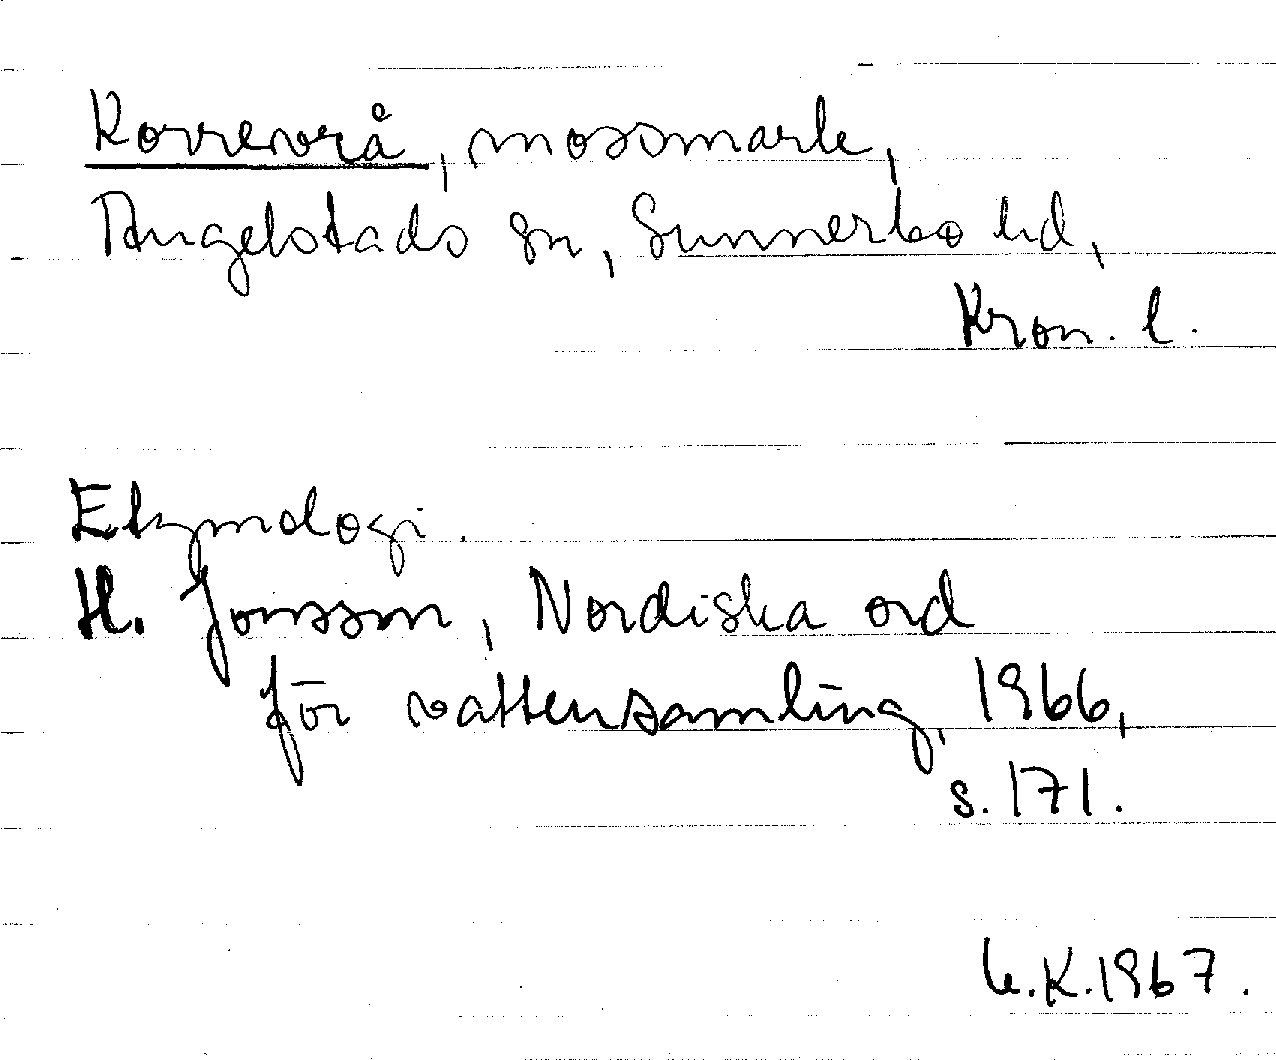 Korrevrå, mossmark,
Angelstads sn, Sunnerbo hd,
Kron. l.
Etymologi.
H. Jonsson, Nordiska ord
för vattensamling, 1966,
s. 171.
K. 1967.